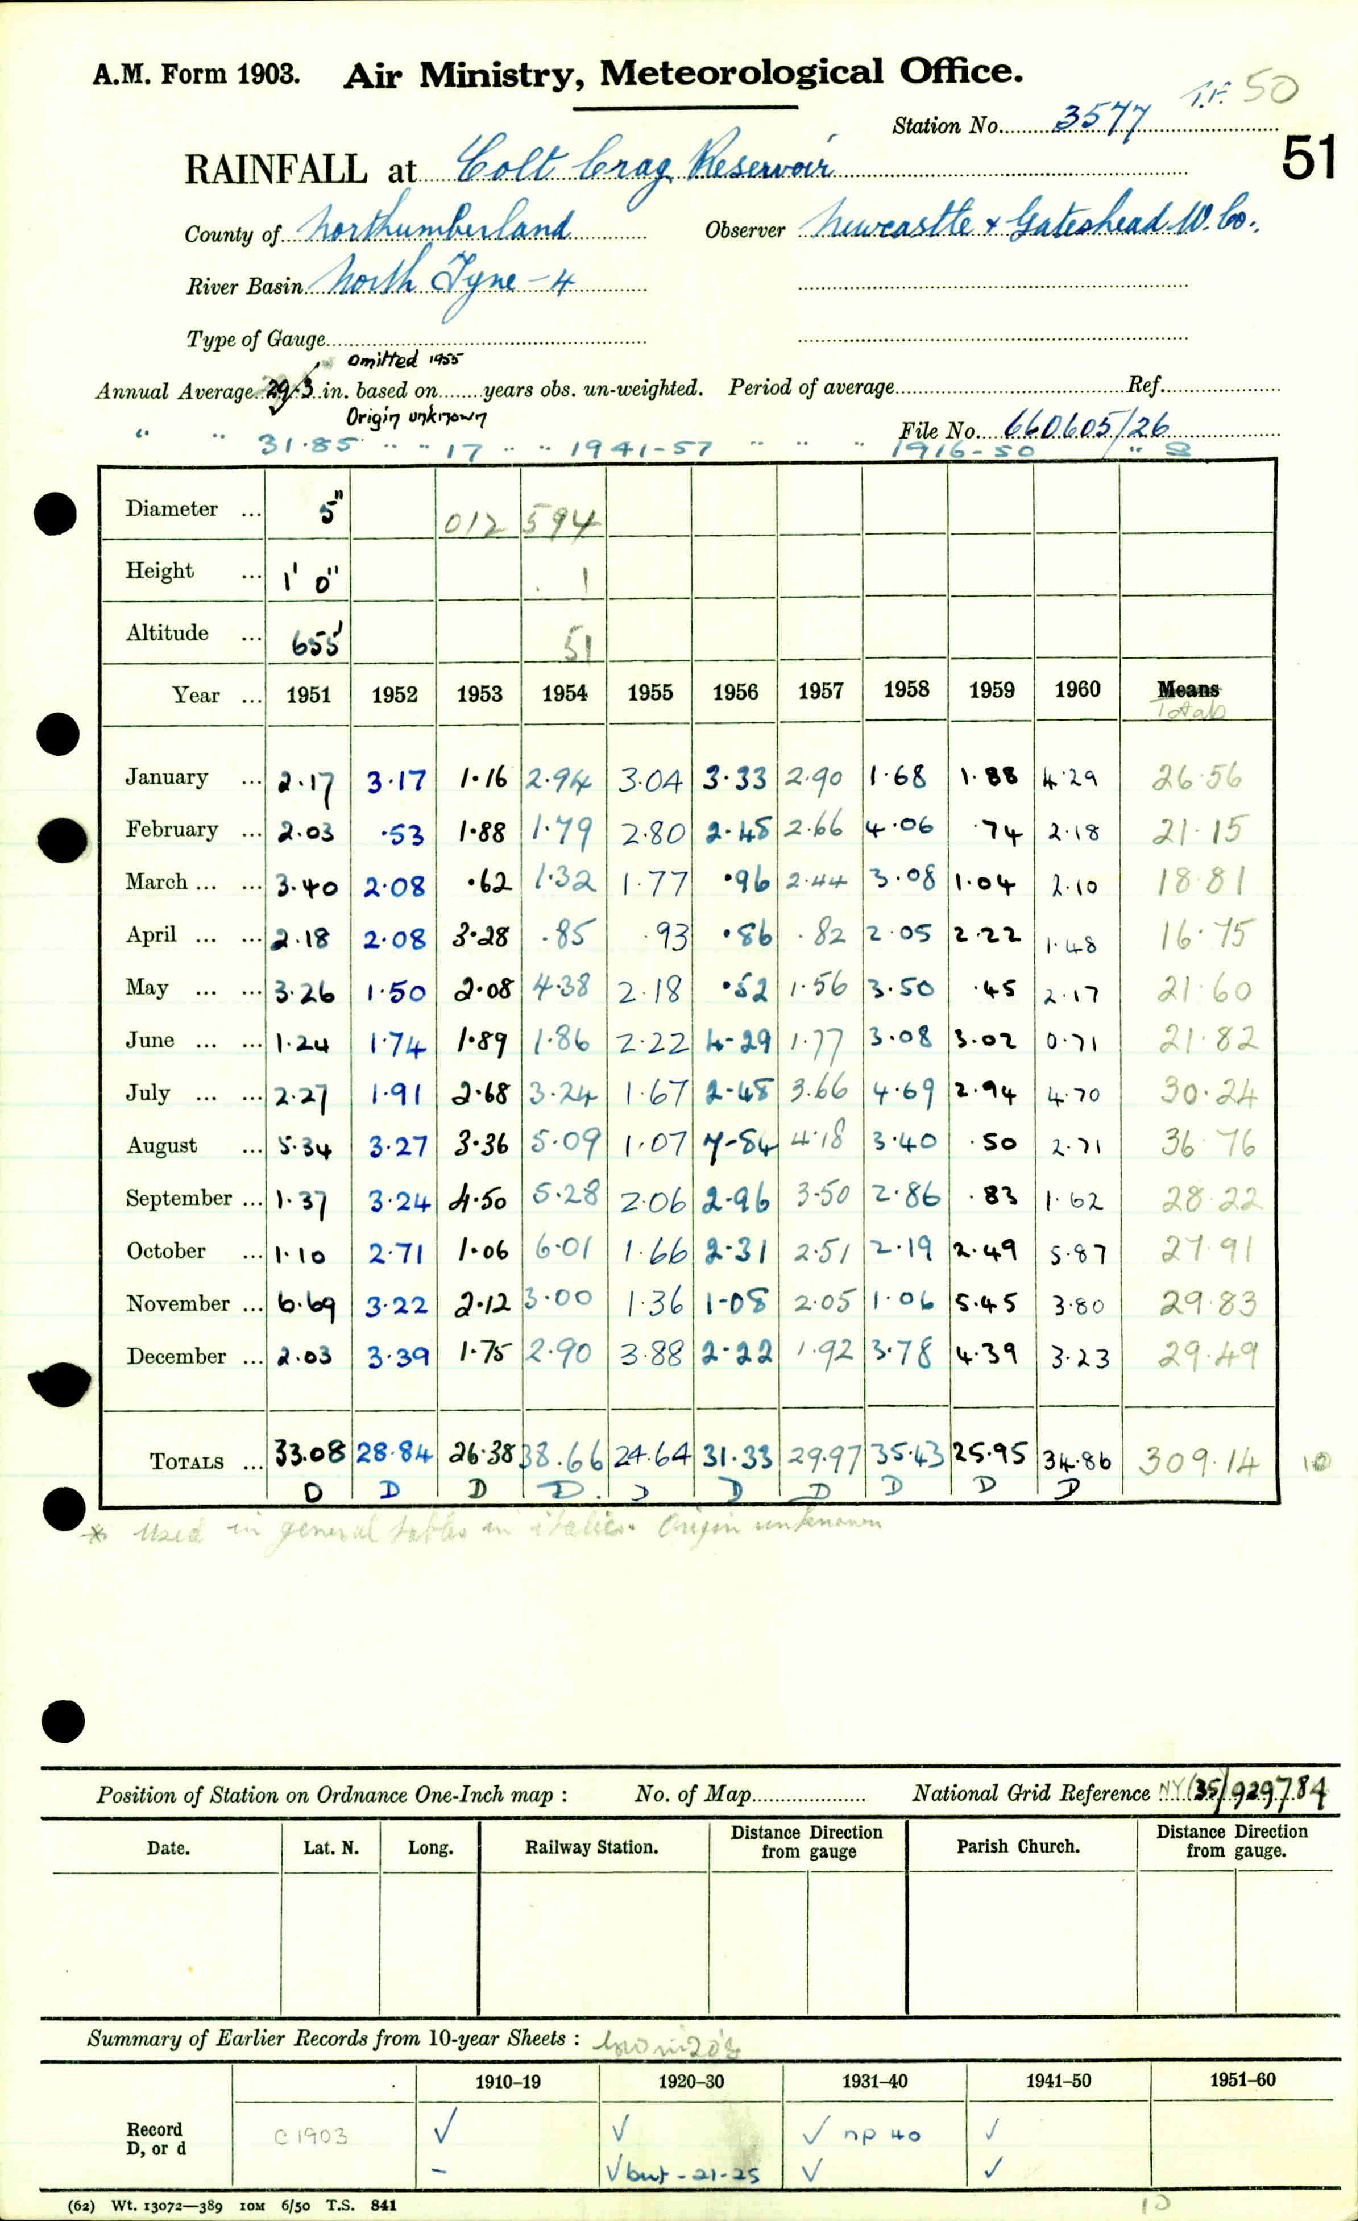 A.M. Form 1903. Air Ministry, Meteorological Office.
T.F. 50
Station No. 3577
51
RAINFALL at Colt Crag Reservoir
County of Northumberland Observer Newcastle & Gateshead W. Co.
River Basin North Tyne - 4
Type of Gauge
Omitted 1955
Annual Average 29.3 in. based on years obs. un-weighted. Period of average Ref.
Origin unknown
File No. 660605/26
" " 31.85 " " 17 " " 1941-57 " " " 1916-50 " S
Diameter ... 5" 012 594
Height ... 1' 0" 1
Altitude ... 655' 51
Year ... 1951 1952 1953 1954 1955 1956 1957 1958 1959 1960 Means
Totals
January ... 2.17 3.17 1.16 2.94 3.04 3.33 2.90 1.68 1.88 4.29 26.56
February ... 2.03 .53 1.88 1.79 2.80 2.48 2.66 4.06 .74 2.18 21.15
March ... ... 3.40 2.08 .62 1.32 1.77 .96 2.44 3.08 1.04 2.10 18.81
April ... ... 2.18 2.08 3.28 .85 .93 .86 .82 2.05 2.22 1.48 16.75
May ... ... 3.26 1.50 2.08 4.38 2.18 .52 1.56 3.50 .45 2.17 21.60
June ... ... 1.24 1.74 1.89 1.86 2.22 4.29 1.77 3.08 3.02 0.71 21.82
July ... ... 2.27 1.91 2.68 3.24 1.67 2.48 3.66 4.69 2.94 4.70 30.24
August ... 5.34 3.27 3.36 5.09 1.07 7.84 4.18 3.40 .50 2.71 36.76
September ... 1.37 3.24 4.50 5.28 2.06 2.96 3.50 2.86 .83 1.62 28.22
October ... 1.10 2.71 1.06 6.01 1.66 2.31 2.51 2.19 2.49 5.87 27.91
November ... 6.69 3.22 2.12 3.00 1.36 1.08 2.05 1.06 5.45 3.80 29.83
December ... 2.03 3.39 1.75 2.90 3.88 2.22 1.92 3.78 4.39 3.23 29.49
TOTALS ... 33.08 28.84 26.38 38.66 24.64 31.33 29.97 35.43 25.95 34.86 309.14 10
D D D D D D D D D D
* Used in general tables in italics. Origin unknown
Position of Station on Ordnance One-Inch map : No. of Map National Grid Reference NY(35)929784
Date. Lat. N. Long. Railway Station. Distance from gauge Direction Parish Church. Distance from gauge. Direction
Summary of Earlier Records from 10-year Sheets :
1910–19 1920–30 1931–40 1941–50 1951–60
Record C1903 ✓ ✓ ✓ np 40 ✓
D, or d - ✓ but -21-25 ✓ ✓
(62) Wt. 13072—389 10M 6/50 T.S. 841
10